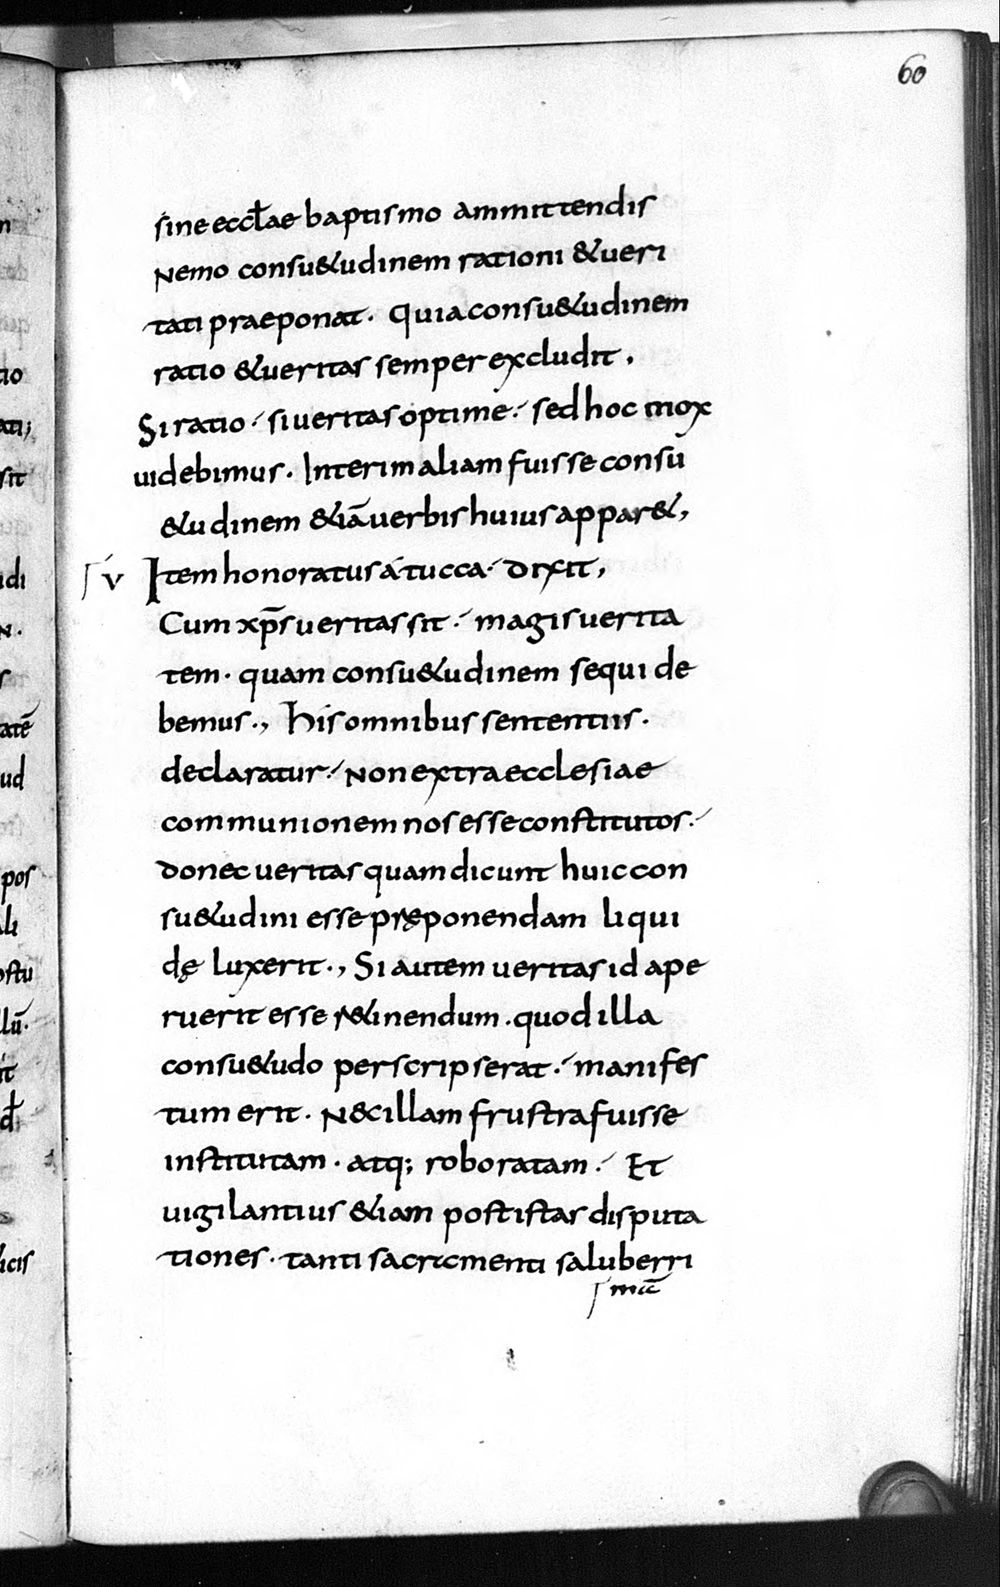 60
sine eccłae baptismo ammittendis
Nemo consu&udinem rationi &ueri
tati praeponat. Quia consu&udinem
ratio &ueritas semper excludit.
Si ratio. si ueritas optime. sed hoc mox
uidebimus. Interim aliam fuisse consu
&udinem &iā uerbis huius appar&,
v Item honoratus á tucca. dixit,
Cum xp̄s ueritas sit. magis uerita
tem. quam consu&udinem sequi de
bemus., His omnibus sententiis.
declaratur. Non extra ecclesiae
communionem nos esse constitutos.
donec ueritas quam dicunt huic con
su&udini esse pręponendam liqui
dę luxerit., Si autem ueritas id ape
ruerit esse r&inendum. quod illa
consu&udo perscripserat. manifes
tum erit. N&illam frustra fuisse
institutam. atq; roboratam. Et
uigilantius &iam post istas disputa
tiones. tanti sacricmenti saluberri